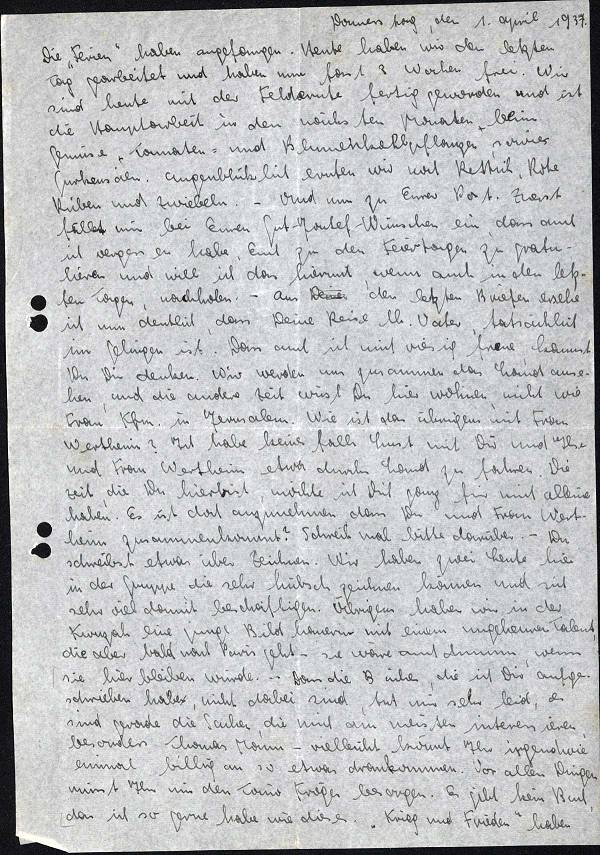 Donnerstag, den 1. April 1937.
Die „Ferien" haben angefangen. Heute haben wir den letzten
Tag gearbeitet und haben nun fast 3 Wochen frei. Wir
sind heute mit der Feldernte fertig geworden und ist
die Hauptarbeit in den nächsten Monaten beim
Gemüse, Tomaten- und Blumenkohlpflanzen, sowie
Gurkensäen. Augenblicklich ernten wir noch Rettich, Rote
Rüben und Zwiebeln. – Und nun zu Eurer Post. Zuerst
fällt mir bei Euren Gut-Jontef-Wünschen ein, dass auch
ich vergessen habe, Euch zu den Feiertagen zu gratu-
lieren und will ich das hiermit, wenn auch in den letz-
ten Tagen, nachholen. – Aus den letzten Briefen ersehe
ich nun deutlich, dass Deine Reise lb. Vater, tatsächlich
im Gelingen ist. Dass auch ich mich riesig freue, kannst
Du Dir denken. Wir werden uns zusammen das Land anse-
hen, und die andere Zeit wirst Du hier wohnen, nicht wie
Frau Kfm. in Jerusalem. Wie ist das übrigens mit Frau
Wertheim? Ich habe keinesfalls Lust mit Dir und
und Frau Wertheim etwa durchs Land zu fahren. Die
Zeit, die Du hier bist, möchte ich Dich ganz für mich alleine
haben. Es ist doch anzunehmen dass Du und Frau Wert-
heim zusammenkommt? Schreib mal bitte darüber. – Du
schreibst etwas über Zeichnen. Wir haben zwei Leute hier
in der Gruppe die sehr hübsch zeichnen können und sich
sehr viel damit beschäftigen. Übrigens haben wir in der
Kwuzah eine junge Bildhauerin mit einem ungeheuren Talent
die aber bald nach Paris geht – sie wäre auch dumm, wenn
sie hier bleiben würde. – Dass die Bücher, die ich Dir aufge-
schrieben habe, nicht dabei sind tut mir sehr leid, es
sind gerade die Sachen, die mich am meisten interessieren,
besonders Thomas Mann – vielleicht könnt Ihr irgendwie
einmal billig an so etwas drankommen. Vor allen Dingen
müsst Ihr mir den Tonio Kröger besorgen. Es gibt kein Buch,
das ich so gerne habe wie dieses. „Krieg und Frieden" haben